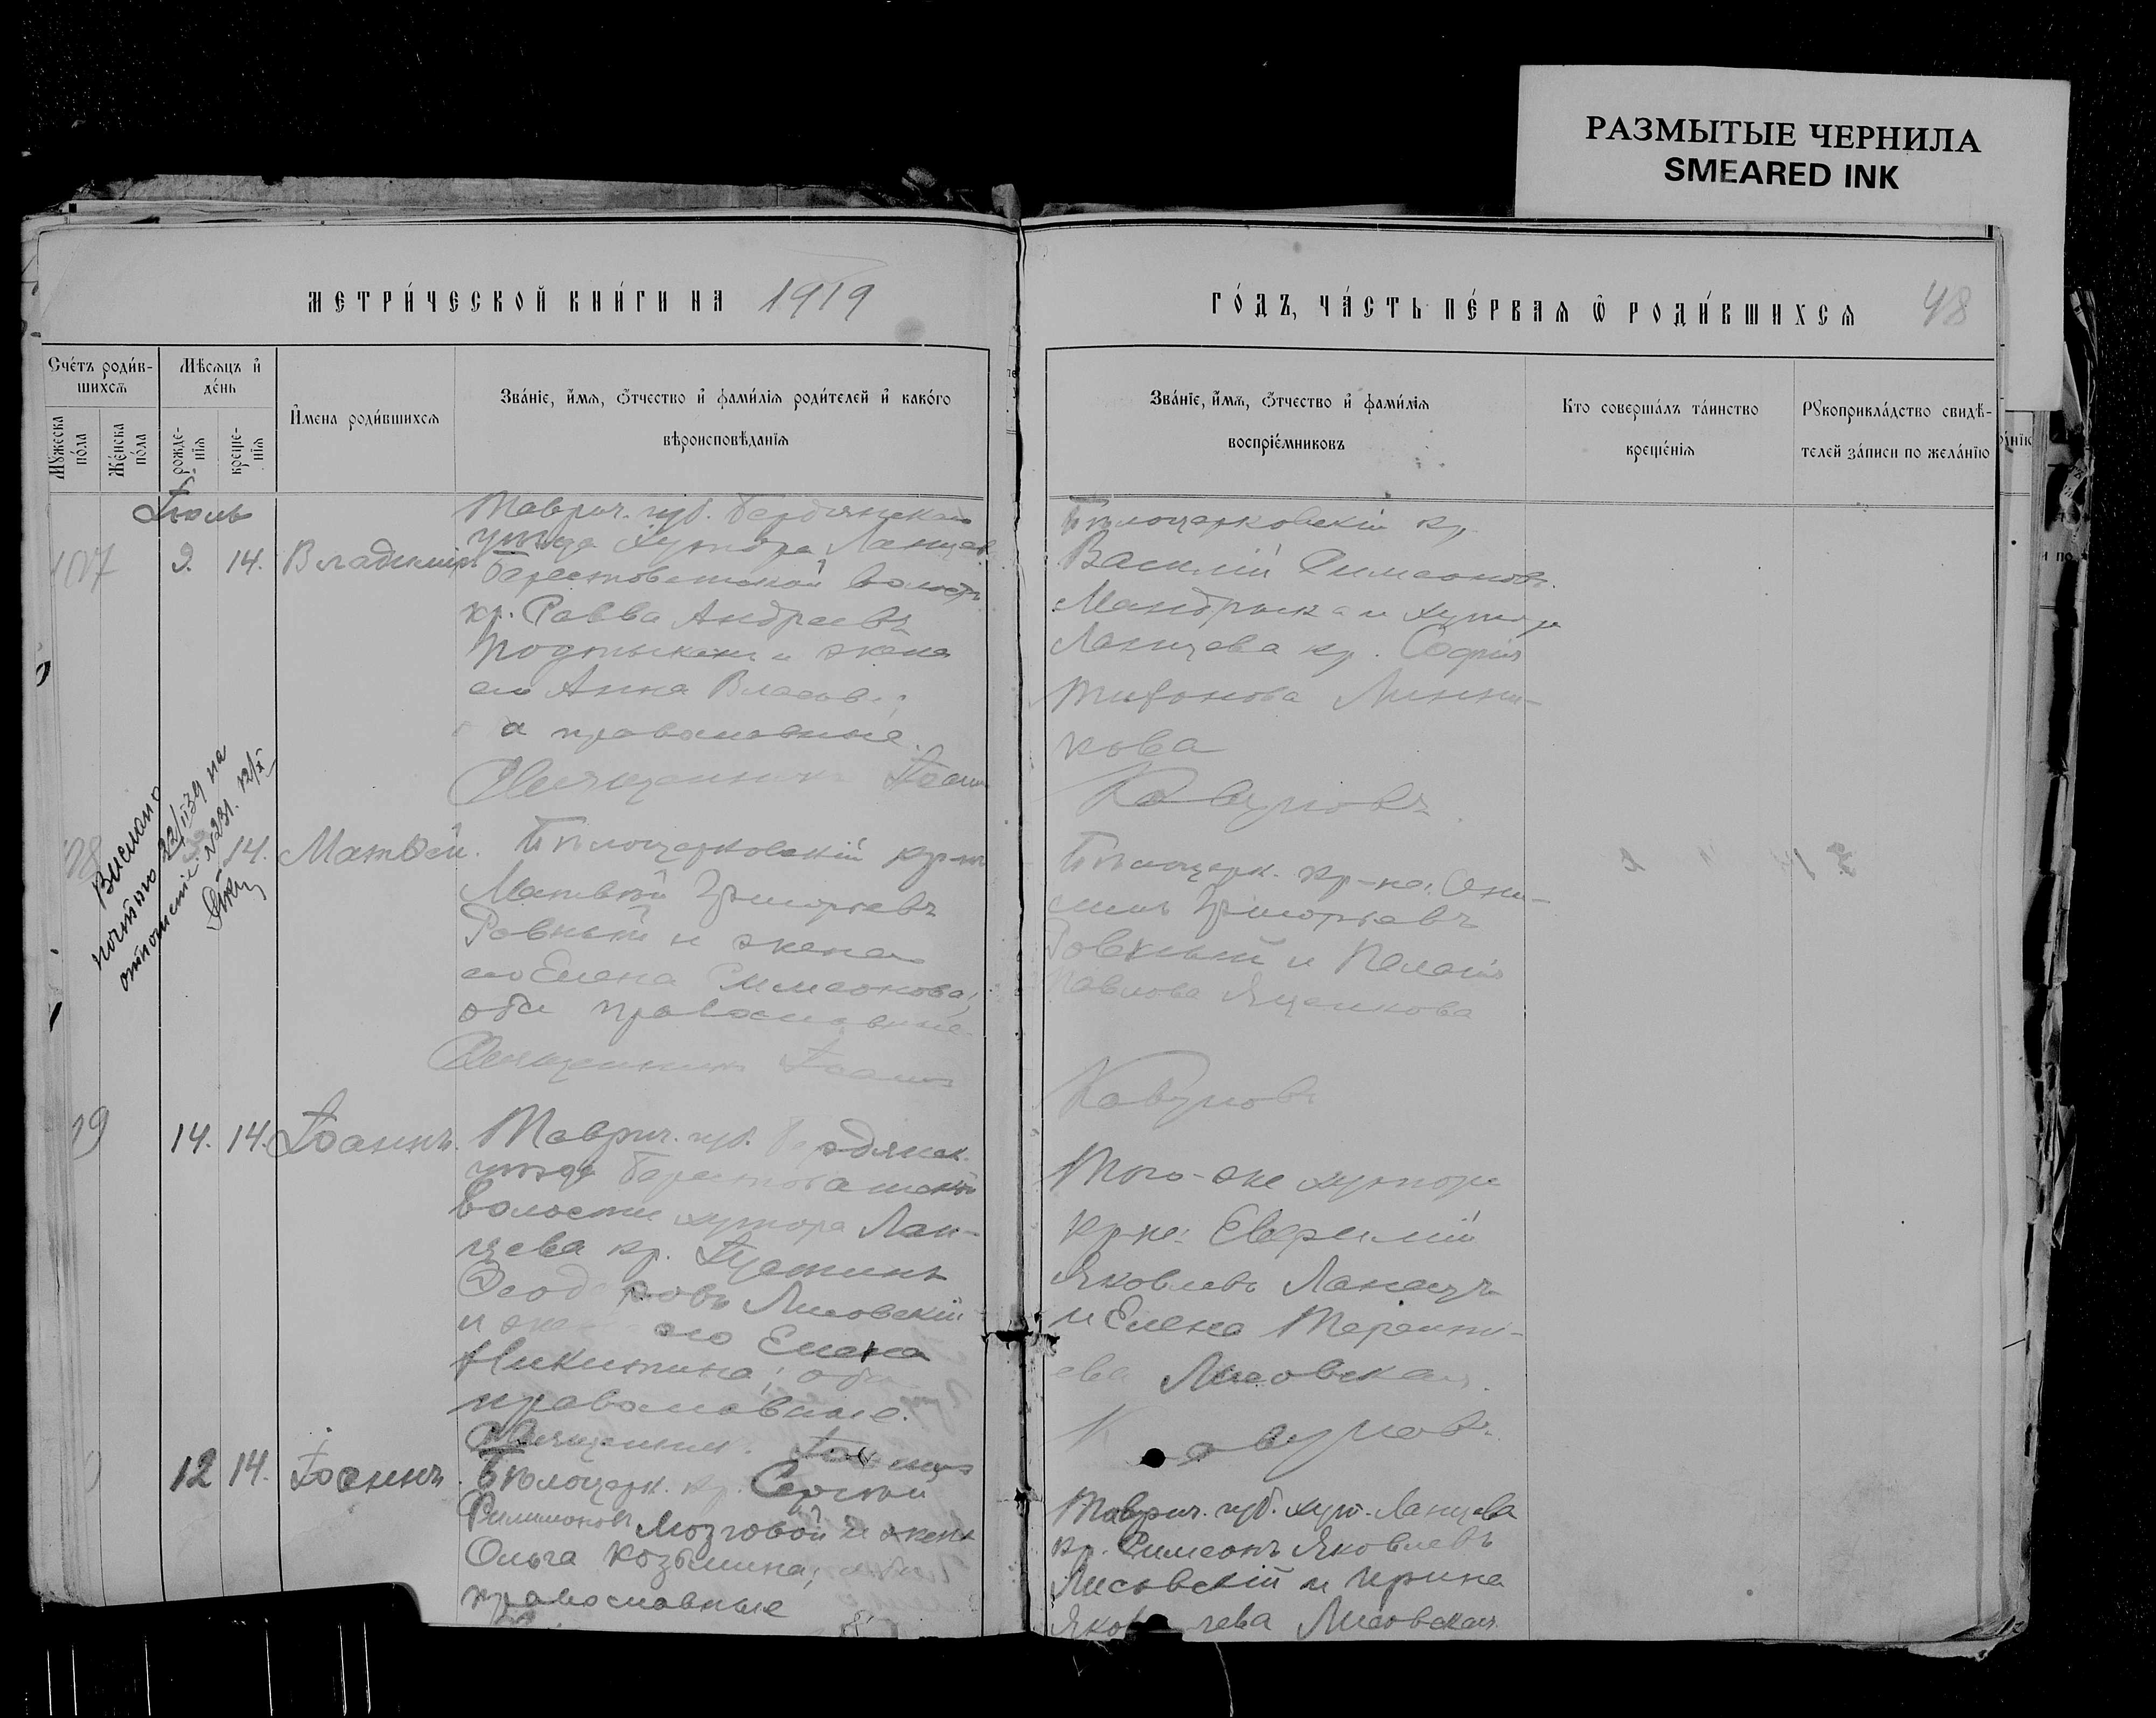 РАЗМЫТЫЕ ЧЕРНИЛА
SMEARED INK
МЕТРИ́ЧЕСКОЙ КНИ́ГИ НА 1919
ГО́ДЪ, ЧА́СТЬ ПЕ́РВАЯ Ѿ РОДИ́ВШИХСЯ 48
Сче́тъ роди́в-
шихсѧ
Мѣсѧцъ и҆
де́нь
Мꙋжеска
по́ла
Же́нска
по́ла
рожде-
нїѧ
креще-
нїѧ
И҆мена роди́вшихсѧ
Зва́нїе, и҆́мѧ, ѻ҆́тчество и҆ фами́лїѧ роди́телей и҆ како́го
вѣроисповѣ́данїѧ
Зва́нїе, и҆́мѧ, ѻ҆́тчество и҆ фами́лїѧ
воспрїе́мниковъ
Кто соверша́лъ та́инство
креще́нїѧ
Рꙋкоприкла́дство свидѣ́-
телей за́писи по жела́нїю
Іюль
107 9. 14. Владиміръ
Таврич. губ. Бердянскаго
уѣзда хутора Ланцев
Берестоветской волости
кр. Савва Андреевъ
и жена
его Анна Власов.;
а православные.
Священникъ Іоаннъ
Бѣлоцерковскій кр.
Василій Симеоновъ
Мандрыка и хутора
Ланцева кр. Софія
Тифонова Линни-
кова
Кавуновъ
Выслано
почтою 22/II 39 на
отношеніе №231.
14. Матѳей.
Бѣлоцерковскій кр-нъ
Матвѣй Григорьевъ
Ровный и жена
его Елена Симеонова;
оба православные
Священникъ Іоаннъ
Бѣлоцерк. кр-не: Они-
симъ Григорьевъ
Ровный и Пелагія
Павлова Яценкова
Кавуновъ
14. 14. Іоаннъ.
Таврич. губ. Бердянск.
уѣзда Берестоватской
волости хутора Лан-
цева кр. Іустинъ
Ѳеодоровъ Лисовскій
и жена его Елена
Никитина; оба
православные.
Священник. Іоаннъ
Того-же хутора
кр-не: Евфимій
Яковлевъ Ланецъ
и Елена Теренти-
ева Лисовская.
Кавуновъ.
12 14. Іоаннъ.
Бѣлоцерк. кр. Сергѣй
Филимоновъ Мозговой и жена
Ольга Козьмина; оба
православные
Таврич. губ. хут. Ланцева
кр. Симеонъ Яковлевъ
Лисовскій и Ирина
Яковлева Лисовская.